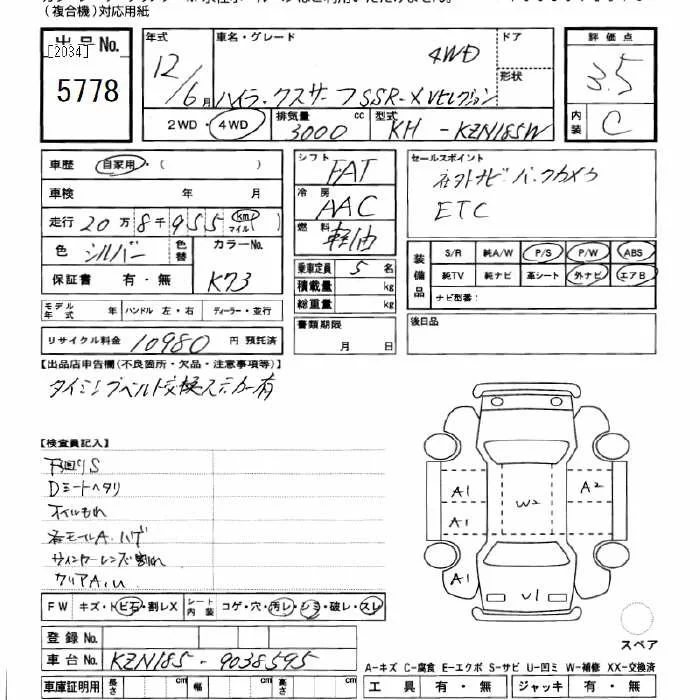 (複合機)対応用紙
出品No.
[2034]
5778
年式 車名・グレード ドア
4WD
12/6月 ハイラックスサーフSSR-XVセレクション 形状
2WD・4WD 排気量 3000 cc 型式 KH-KZN185W
評価点
3.5
内装 C
車歴 自家用・( )
車検 年 月
走行 20万8千955 (km マイル)
色 シルバー 色替 カラーNo. K73
保証書 有・無
モデル年式 年 ハンドル 左・右 ディーラー・並行
リサイクル料金 10980 円 預託済
シフト FAT
冷房 AAC
燃料 軽油
乗車定員 5 名
積載量 kg
総重量 kg
書類期限
月 日
セールスポイント
社外ナビ バックカメラ
ETC
装備品
S/R 純A/W P/S P/W ABS
純TV 純ナビ 革シート 外ナビ エアB
ナビ型番:
後日品
【出品店申告欄(不良箇所・欠品・注意事項等)】
タイミングベルト交換ステッカー有
【検査員記入】
下回りS
Dミートヘタリ
オイルもれ
各モールA、ハゲ
ウインカーレンズ割れ
クリアA、U
A1 A1 A1 W2 A2 U1
FW キズ・トビ石・割レX シート内装 コゲ・穴・汚レ・シミ・破レ・スレ
登録No.
車台No. KZN185-9038595
車庫証明用 長さ cm 幅 cm 高さ cm
スペア
A-キズ C-腐食 E-エクボ S-サビ U-凹ミ W-補修 XX-交換済
工具 有・無 ジャッキ 有・無